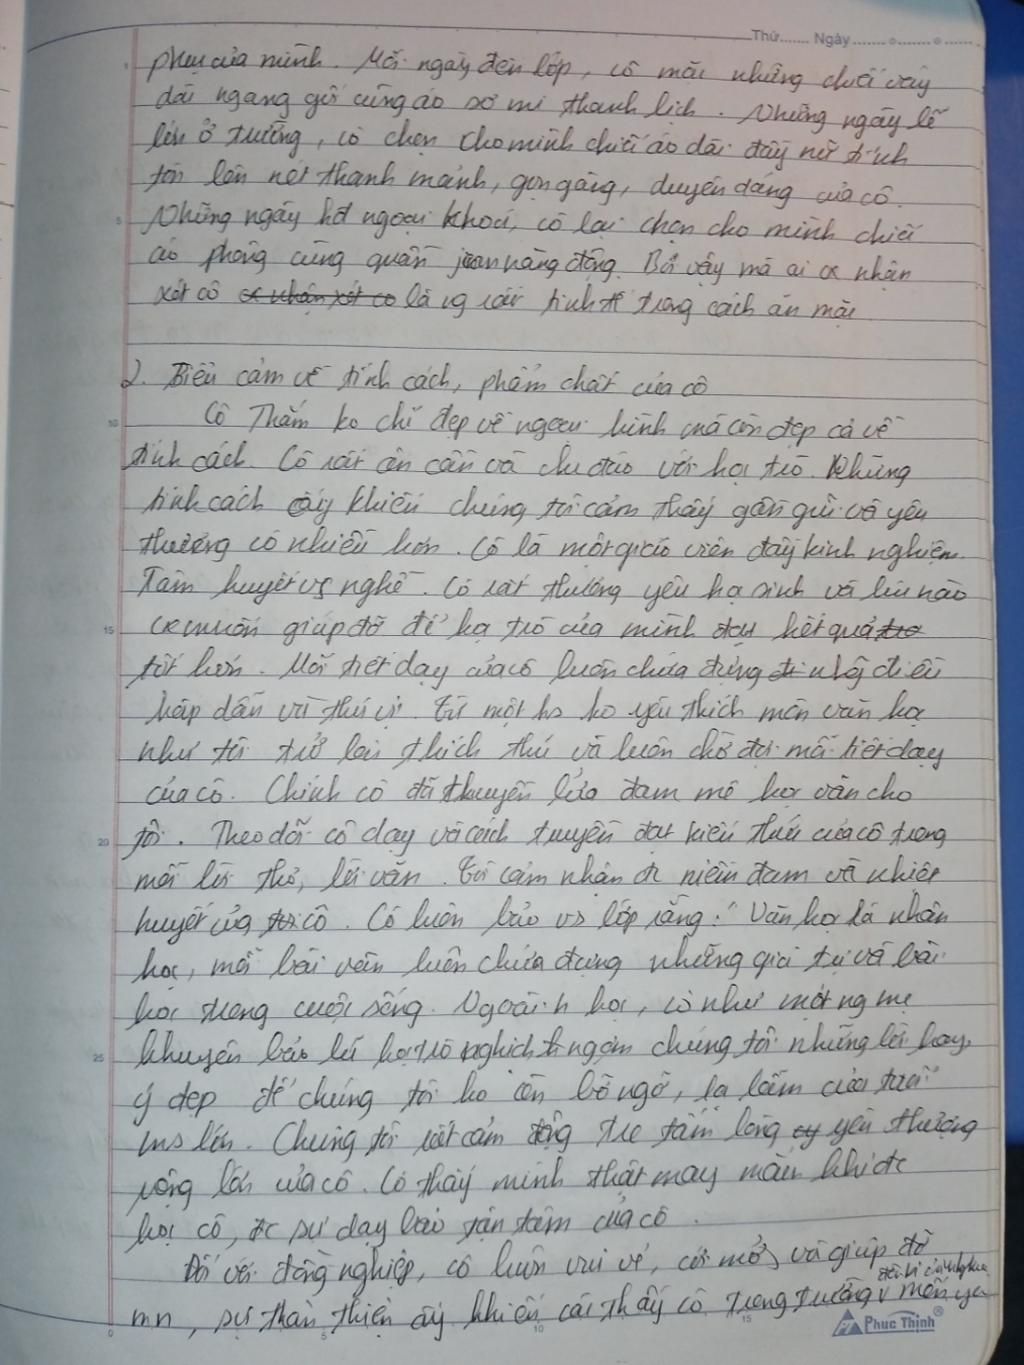 Thứ....... Ngày.......
phục của mình. Mỗi ngày đến lớp, cô mặc những chiếc váy
dài ngang gối cùng áo sơ mi thanh lịch. Những ngày lễ
lớn ở trường, cô chọn cho mình chiếc áo dài đầy nữ tính
tôn lên nét thanh mảnh, gọn gàng, duyên dáng của cô.
5
Những ngày hđ ngoại khoá, cô lại chọn cho mình chiếc
áo phông cùng quần jean năng động. Bởi vậy mà ai cx nhận
xét cô cx nhận xét cô là ng rất tinh tế trong cách ăn mặc
2. Biểu cảm về tính cách, phẩm chất của cô
10
Cô Thắm ko chỉ đẹp về ngoại hình mà còn đẹp cả về
tính cách. Cô rất ân cần và chu đáo với học trò. Những
tính cách ấy khiến chúng tôi cảm thấy gần gũi và yêu
thương cô nhiều hơn. Cô là một giáo viên đầy kinh nghiệm.
Tâm huyết vs nghề. Cô rất thương yêu họ sinh và lúc nào
15
cx muốn giúp đỡ để họ trò của mình đạt kết quả
tốt hơn. Mỗi tiết dạy của cô luôn chứa đựng điều
hấp dẫn và thú vị. Từ một hs ko yêu thích môn văn học
như tôi trở lên thích thú và luôn chờ đợi mỗi tiết dạy
của cô. Chính cô đã truyền lửa đam mê học văn cho
20
tôi. Theo dõi cô dạy và cách truyền đạt kiến thức của cô trong
mỗi lời thơ, lời văn. Tôi cảm nhận đc niềm đam và nhiệt
huyết của cô. Cô luôn bảo vs lớp rằng: "Văn học là nhân
học, mỗi bài văn luôn chứa đựng những giá trị và bài
học trong cuộc sống. Ngoài h học, cô như một ng mẹ
25
khuyên bảo lũ học trò nghịch ngợm chúng tôi những lời hay,
ý đẹp để chúng tôi ko còn bỡ ngỡ, lạ lẫm của tuổi
ms lớn. Chúng tôi rất cảm động trc tấm lòng yêu thương
rộng lớn của cô. Có thấy mình thật may mắn khi đc
học cô, đc sự dạy bảo tận tâm của cô.
Đối với đồng nghiệp, cô luôn vui vẻ, cởi mở và giúp đỡ
mn, sự thân thiện ấy khiến các thầy cô trong trường mến yêu
0 5 10 15
Phuc Thinh®